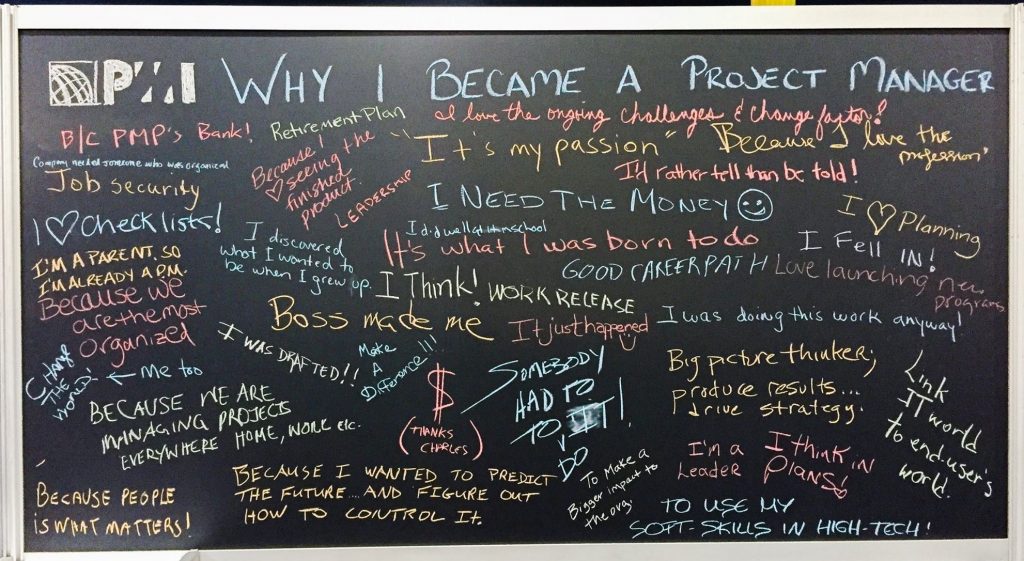 PMI WHY I BECAME A PROJECT MANAGER
B/C PMP'S Bank!
Retirement Plan
I love the ongoing challenges & change factor!
Company needed someone who was organized
Job security
Because I
♡ seeing the
finished
product.
LEADERSHIP
It's my passion
"Because I love the
profession"
I'd rather tell than be told!
I NEED THE MONEY ☺
I ♡ Checklists!
I discovered
what I wanted to
be when I grew up.
I did well at it in school
It's what I was born to do
I ♡ Planning
I Fell IN!
I'M A PARENT. SO
I'M ALREADY A P.M.
GOOD CAREER PATH
Love launching new
programs
Because we
are the most
organized
I Think!
WORK RELEASE
Boss made me
It just happened
I was doing this work anyway!
I WAS DRAFTED!!
Make
A
Difference!!!
CHANGE
THE
WORLD!
← Me too
$
(THANKS
CHARLES)
SOMEBODY
HAD TO
TO IT!
DO
Big picture thinker;
produce results...
drive strategy.
Link
IT world
to end user's
world.
BECAUSE WE ARE
MANAGING PROJECTS
EVERYWHERE HOME, WORK etc.
I'm a
Leader
I think in
Plans!
BECAUSE PEOPLE
is WHAT MATTERS!
BECAUSE I WANTED TO PREDICT
THE FUTURE.... AND FIGURE OUT
HOW TO CONTROL It.
To Make a
Bigger impact to
the org.
TO USE MY
SOFT-SKILLS IN HIGH-TECH!